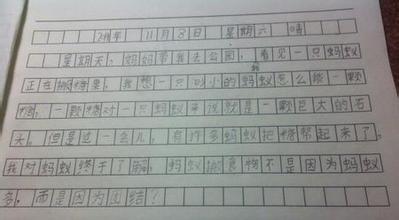 2014年 11月8日 星期六 晴
星期天,妈妈带我去公园,看见一只蚂蚁
正在搬糖果,我想一只小小的蚂蚁怎么能一颗
糖,一颗糖对一只蚂蚁来说就是一颗巨大的石
头。但是过一会儿,有许多蚂蚁把糖帮起来了,
我对蚂蚁终于了解,蚂蚁搬食物不是因为蚂蚁
多,而是因为团结!